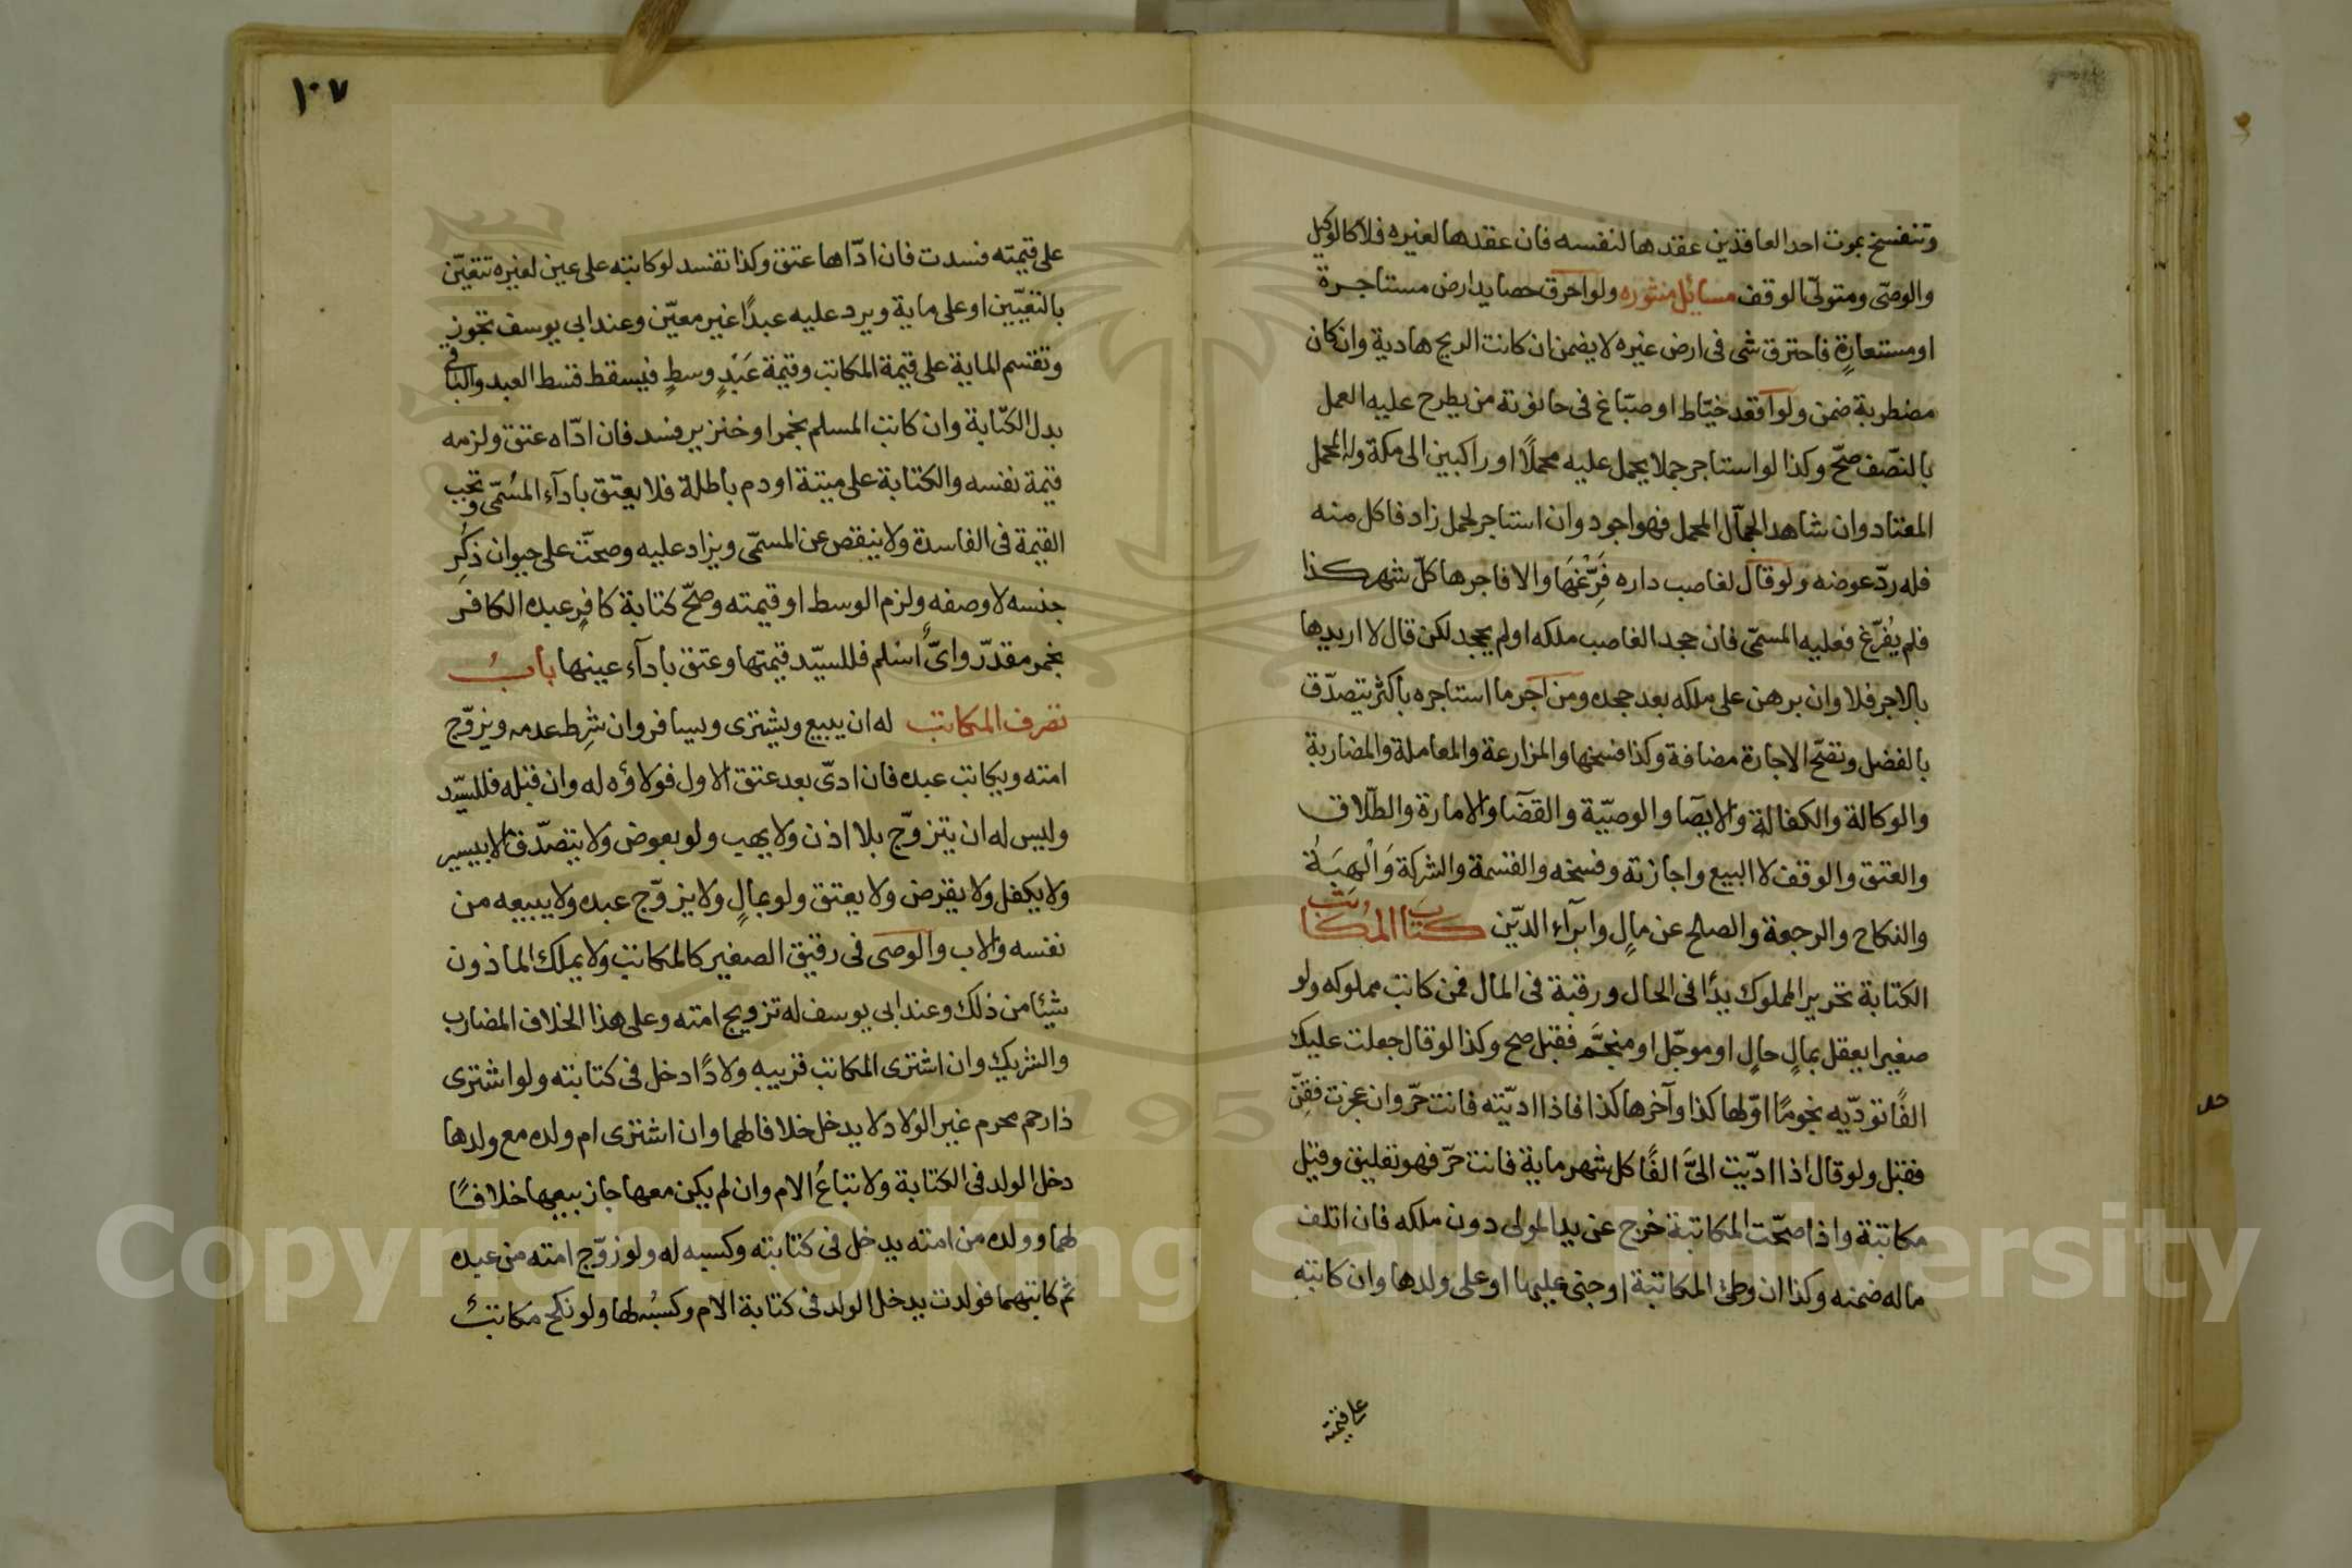 وتنفسخ بموت احد العاقدين عقدها لنفسه فان عقدها لغيره فلا كالوكيل
والوصّى ومتولّى الوقف مسائل منثوره ولو احرق حصايد ارض مستاجرة
او مستعارةٍ فاحترق شى فى ارض غيره لا يضمن ان كانت الريح هادية وان كان
مضطربة ضمن ولو اقعد خيّاط او صبّاغ فى حانوته من يطرح عليه العمل
بالنصّف صحّ وكذا لو استاجر جملا يحمل عليه محملًا او راكبين الى مكة وله المحمل
المعتاد وان شاهد الجمّال المحمل فهو اجود وان استاجر لحمل زاد فاكل منه
فله ردّ عوضه ولو قال لغاصب داره فَرِّغْهَا والا فاجرها كلّ شهر كذا
فلم يُفرّغ فعليه المسمّى فان جحد الغاصب ملكه او لم يجحد لكن قال لا اريدها
بالاجر فلا وان برهن على ملكه بعد جحده ومن اجر ما استاجره باكثر يتصدّق
بالفضل وتصّح الاجارة مضافة وكذا فسخها والمزارعة والمعاملة والمضاربة
والوكالة والكفالة والايصآ والوصيّة والقضآ والامارة والطّلاق
والعتق والوقف لا البيع واجازته وفسخه والقسمة والشركة وَالْهِبَةُ
والنكاح والرجعة والصلح عن مالٍ وابرآء الدّين كتاب المكاتب
الكتابة تحرير المملوك يدًا فى الحال ورقبة فى المال فمن كاتب مملوكه ولو
صغيرا يعقل بمالٍ حالٍ او موجّل او منجَّم فقبل صح وكذا لو قال جعلت عليك
الفًا تودّيه نجومًا اوّلها كذا وآخرها كذا فاذا ادّيته فانت حرّ وان عجزت فقِنّ
فقبل ولو قال اذا ادّيت الىَّ الفًا كل شهر ماية فانت حرّ فهو تعليق وقيل
مكاتبة واذا صحّت المكاتبة خرج عن يد المولى دون ملكه فان اتلف
ماله ضمنه وكذا ان وطئ المكاتبة او جنى عليها او على ولدها وان كاتبه
على قيمته
١٠٧
على قيمته فسدت فان ادّاها عتق وكذا تفسد لو كاتبه على عين لغيره تتعيّن
بالتعيّين او على ماية ويرد عليه عبدًا غير معيّن وعند ابي يوسف تجوز
وتقسم الماية على قيمة المكاتب وقيمة عَبْدٍ وسطٍ فيسقط قسط العبد والباقى
بدل الكتابة وان كاتب المسلم بخمر او خنزير فسد فان ادّاه عتق ولزمه
قيمة نفسه والكتابة على ميتة او دم باطلة فلا يعتق بادآء المسُمّى وتجب
القيمة فى الفاسدة ولا ينقص عن المسمّى ويزاد عليه وصحتّ على حيوان ذُكِر
جنسه لا وصفه ولزم الوسط او قيمته وصحّ كتابة كافرٍ عبده الكافر
بخمر مقدّر واىٌّ اسْلم فللسيّد قيمتها وعتق بادآء عينها بابُ
تصرف المكاتب له ان يبيع ويشترى ويسافر وان شِرط عدمه ويزوّج
امته ويكاتب عبده فان ادىّ بعد عتق الاول فولاؤه له وان قبله فللسيّد
وليس له ان يتزوّج بلا اذن ولا يهب ولو بعوض ولا يتصدّق الا بيسير
ولا يكفل ولا يقرض ولا يعتق ولو بمالٍ ولا يزوّج عبده ولا يبيعه من
نفسه والاب والوصى فى رقيق الصغير كالمكاتب ولا يملك الماذون
شيئا من ذلك وعند ابى يوسف له تزويج امته وعلى هذا الخلاف المضارب
والشريك وان اشترى المكاتب قريبه ولادًا دخل فى كتابته ولو اشترى
ذا رحم محرم غير الولاد لا يدخل خلافا لهما وان اشترى ام ولده مع ولدها
دخل الولد فى الكتابة ولا تباعُ الام وان لم يكن معها جاز بيعها خلافًا
لهما وولده من امته يدخل فى كتابته وكسبه له ولو زوّج امته من عبده
ثم كاتبهما فولدت يدخل الولد فى كتابة الام وكسبُه لها ولو نكح مكاتبُ
Copyright © King Saud University